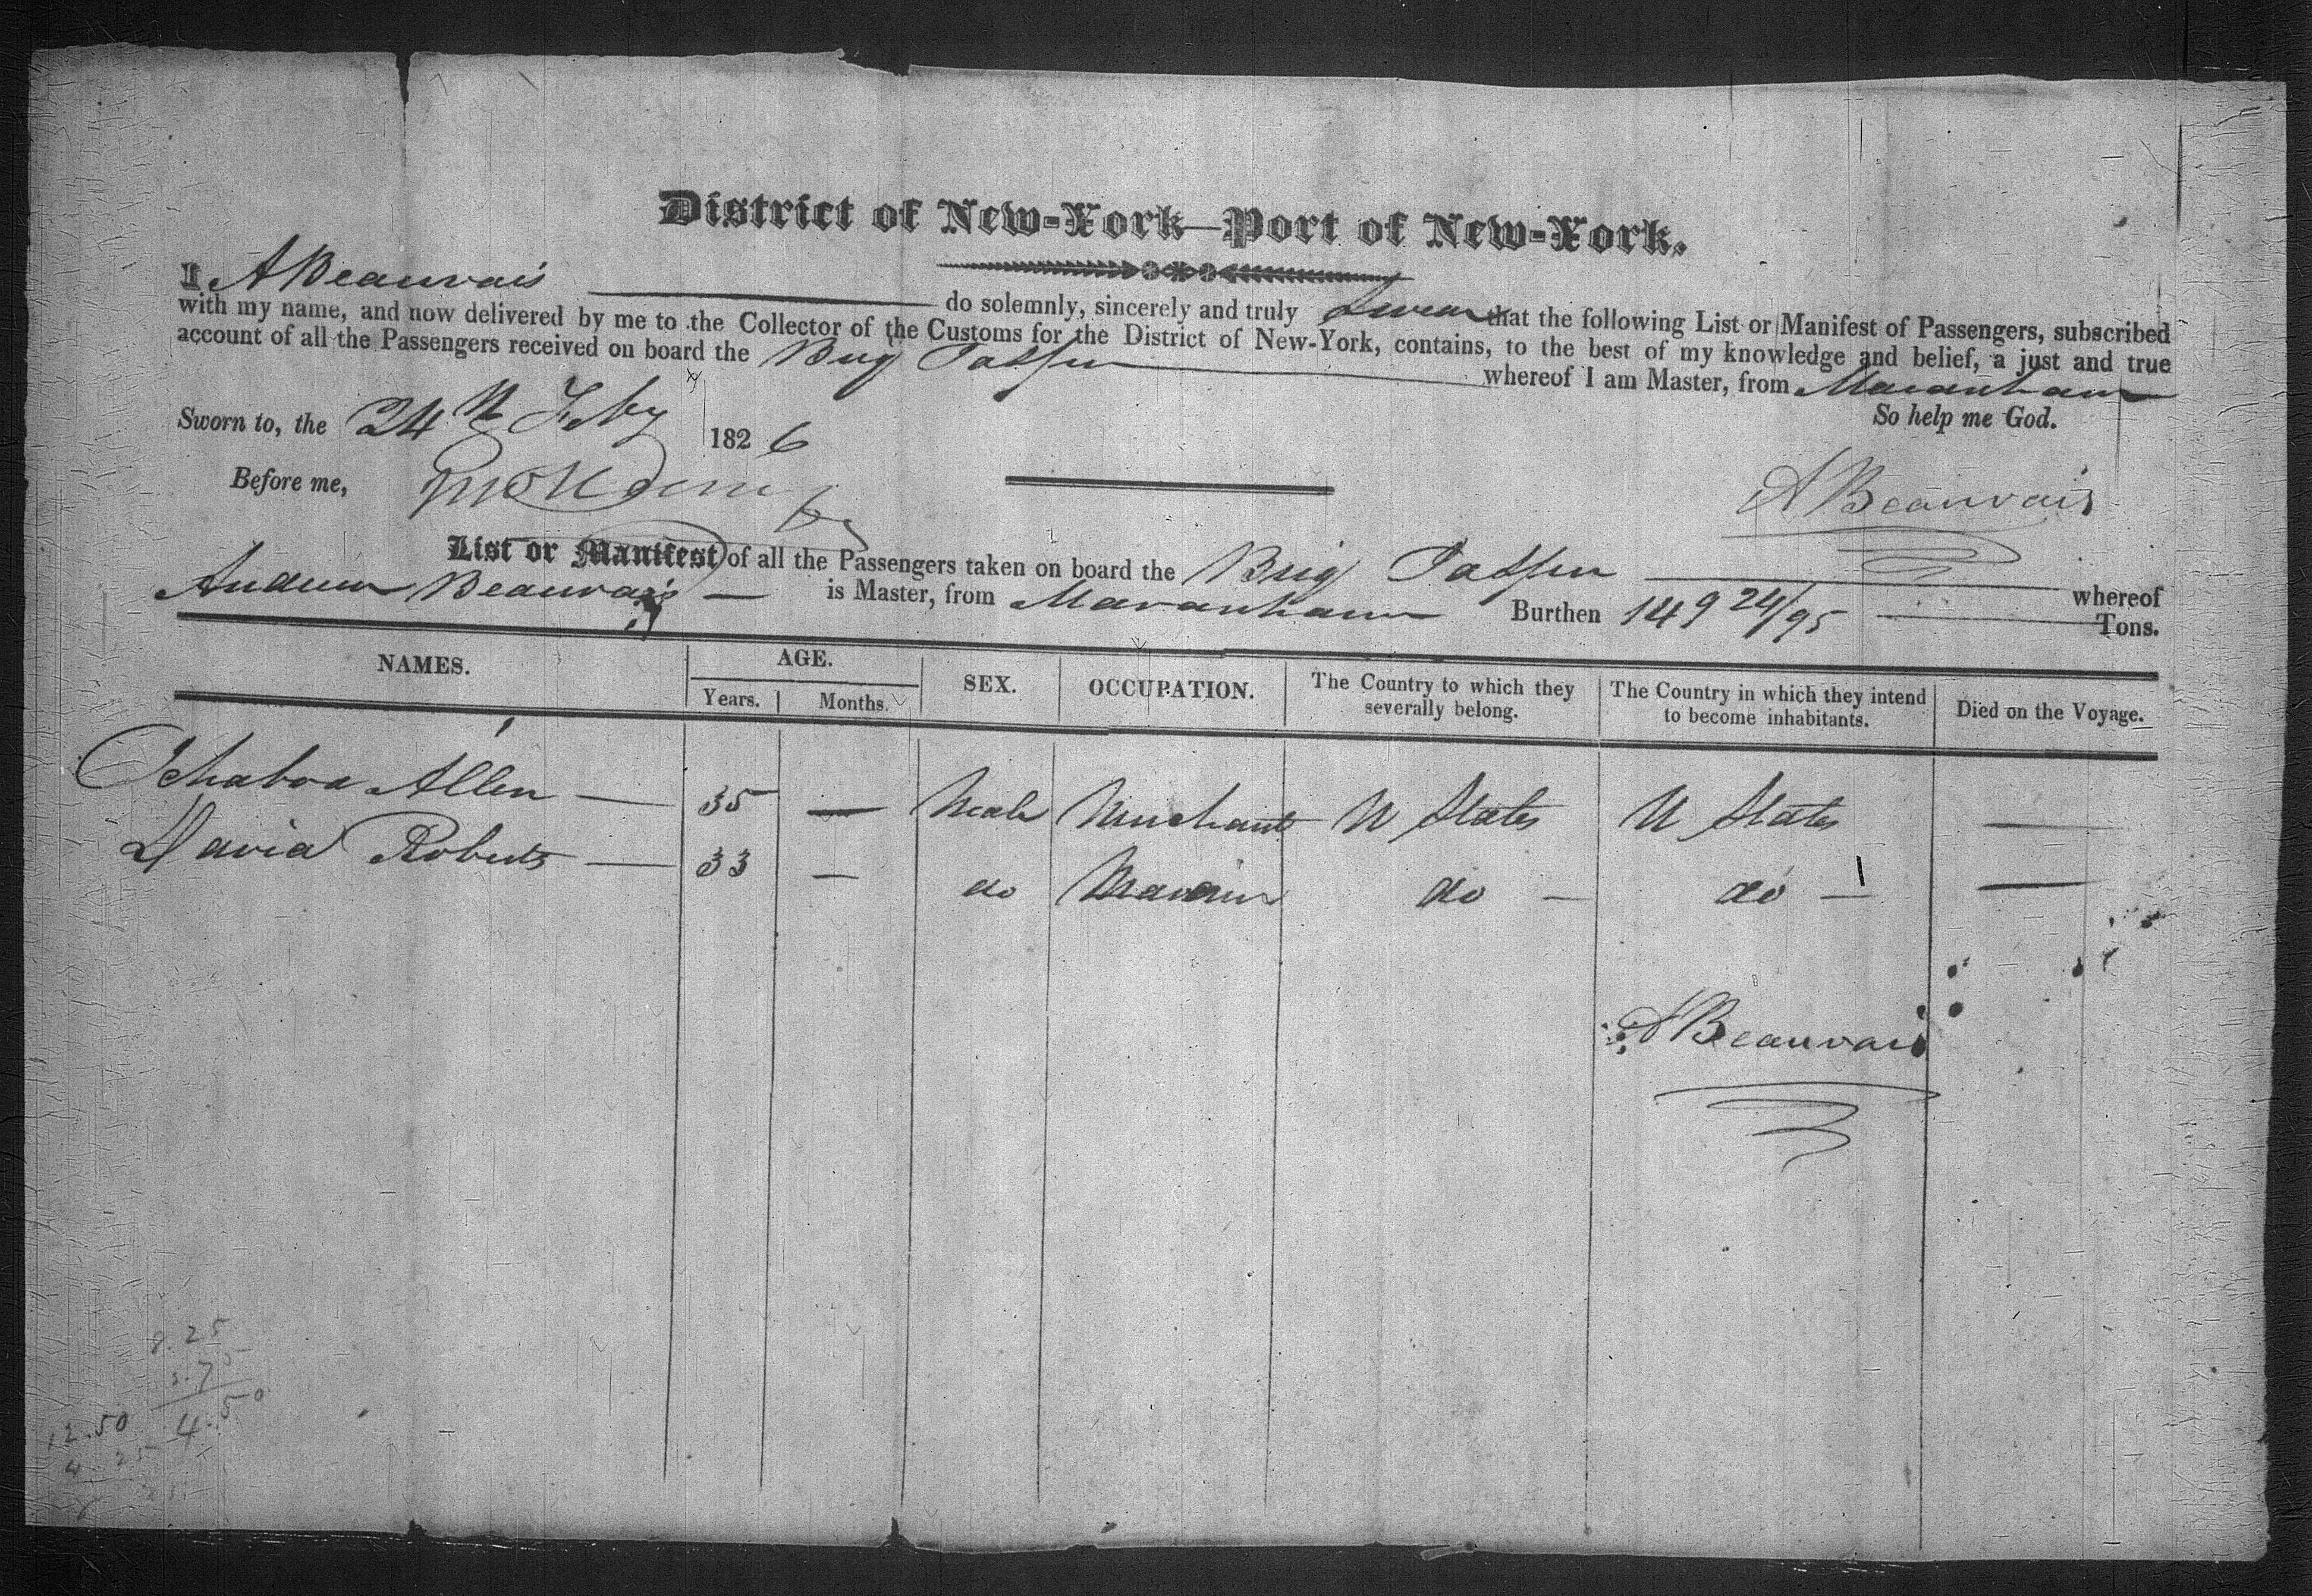 District of New-York—Port of New-York.
I A Beauvais do solemnly, sincerely and truly Swear that the following List or Manifest of Passengers, subscribed
with my name, and now delivered by me to the Collector of the Customs for the District of New-York, contains, to the best of my knowledge and belief, a just and true
account of all the Passengers received on board the Brig whereof I am Master, from Maranham
So help me God.
Sworn to, the 24th Feby 1826
Before me,
A Beauvais
List or Manifest of all the Passengers taken on board the Brig whereof
Andrew Beauvais — is Master, from Maranham Burthen 149 24/95 Tons.
NAMES. AGE. SEX. OCCUPATION. The Country to which they severally belong. The Country in which they intend to become inhabitants. Died on the Voyage.
Years. Months.
Ichabod Allen — 35 — Male Merchant U States U States —
David Roberts — 33 — do Mariner do — do — —
A Beauvais
8.25
3.75
4.50
12.50
4 25